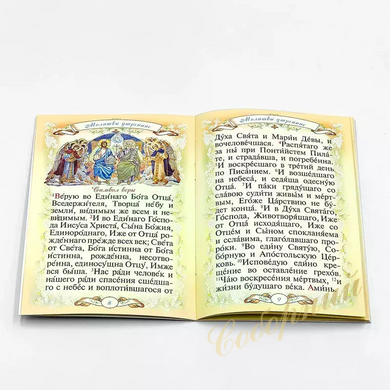 Молитвы утренние
Символ веры
¹Ве́рую во Еди́наго Бо́га Отца́,
Вседержи́теля, Творца́ не́бу и
земли́, ви́димым же всем и не-
ви́димым. ²И во Еди́наго Го́спо-
да Иису́са Христа́, Сы́на Бо́жия,
Единоро́днаго, И́же от Отца́
рожде́ннаго пре́жде всех век; Све́та
от Све́та, Бо́га и́стинна от Бо́га
и́стинна, рожде́нна, несотво-
ре́нна, единосу́щна Отцу́, И́мже
вся бы́ша. ³Нас ра́ди челове́к и
на́шего ра́ди спасе́ния сше́дша-
го с небе́с и воплоти́вшагося от
8
Молитвы утренние
Ду́ха Свя́та и Мари́и Де́вы, и
вочелове́чшася. ⁴Распя́таго же
за ны́ при Понти́йстем Пила́-
те, и страда́вша, и погребе́нна.
⁵И воскре́сшаго в тре́тий день,
по Писа́нием. ⁶И возше́дшаго
на небеса́, и седя́ща одесну́ю
Отца́. ⁷И па́ки гряду́щаго со
сла́вою суди́ти живы́м и ме́рт-
вым, Его́же Ца́рствию не бу́дет
конца́. ⁸И в Ду́ха Свята́го,
Го́спода, Животворя́щаго, И́же
от Отца́ исходя́щаго, И́же со
Отце́м и Сы́ном спокланя́ема и
ссла́вима, глаго́лавшаго проро́-
ки. ⁹Во еди́ну Святу́ю, Собо́р-
ную и Апо́стольскую Це́рковь.
¹⁰Испове́дую еди́но креще́ние
во оставле́ние грехо́в.
¹¹Ча́ю воскресе́ния ме́ртвых, ¹²и
жи́зни бу́дущаго ве́ка. Ами́нь.
9